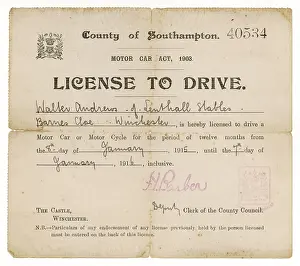 County of Southampton. 40534
MOTOR CAR ACT, 1903.
LICENSE TO DRIVE.
Walter Andrews of Lenthall Stables
Barnes Cloe - Winchester, is hereby licensed to drive a
Motor Car or Motor Cycle for the period of twelve months from
the 8th day of January 1915 until the 7th day of
January 1916, inclusive.
THE CASTLE,
WINCHESTER.
Deputy Clerk of the County Council.
N.B.—Particulars of any endorsement of any license previously held by the person licensed
must be entered on the back of this license.